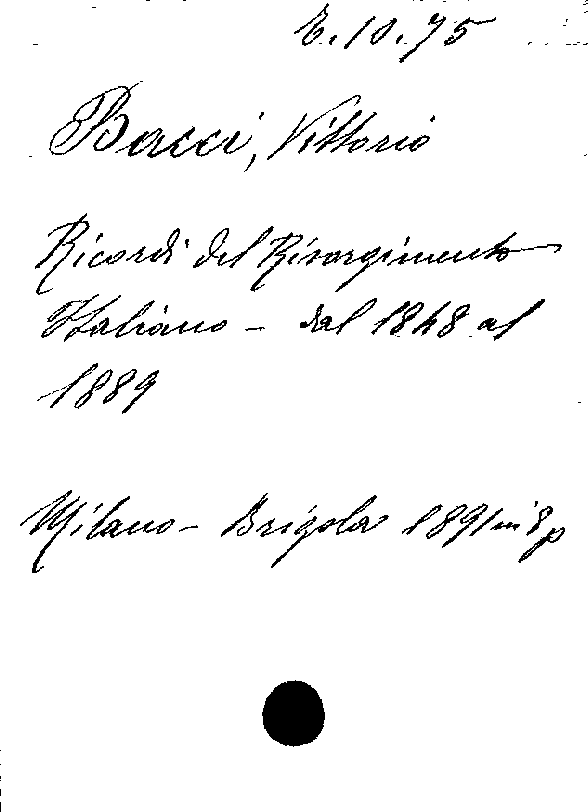 E.10.75
Bacci, Vittorio
Ricordi del Risorgimento
Italiano - dal 1848 al
1889
Milano - Brigola 1891 in 8p